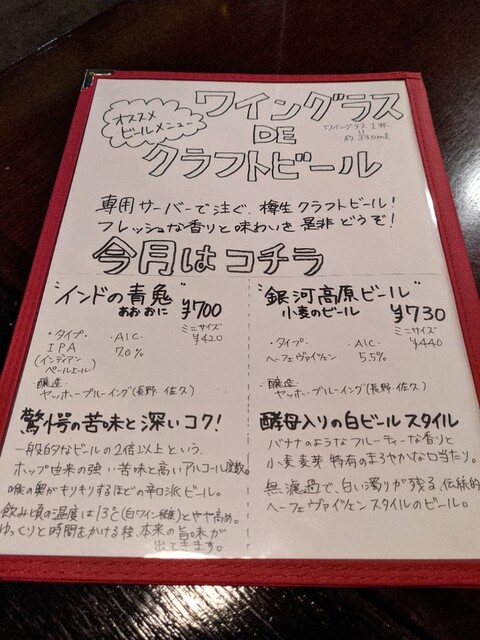 オススメ
ビールメニュー
ワイングラス
DE
クラフトビール
ワイングラス1杯
約330ml
専用サーバーで注ぐ、樽生クラフトビール!
フレッシュな香りと味わいを是非どうぞ!
今月はコチラ
"インドの青鬼"
あおおに
¥700
ミニサイズ
¥420
・タイプ・
IPA
(インディアン
ペールエール)
・Alc・
7.0%
・醸造・
ヤッホーブルーイング(長野・佐久)
驚愕の苦味と深いコク!
一般的なビールの2倍以上という、
ホップ由来の強い苦味と高いアルコール度数。
喉の奥がキリキリするほどの辛口派ビール。
飲み頃の温度は13℃(白ワイン程度)とやや高め。
ゆっくりと時間をかける程、本来の旨味が
出てきます。
"銀河高原ビール"
小麦のビール
¥730
ミニサイズ
¥440
・タイプ・
ヘーフェヴァイツェン
・Alc・
5.5%
・醸造・
ヤッホーブルーイング(長野・佐久)
酵母入りの白ビールスタイル
バナナのようなフルーティーな香りと
小麦麦芽特有のまろやかな口当たり。
無濾過で、白い濁りが残る、伝統的
ヘーフェヴァイツェンスタイルのビール。